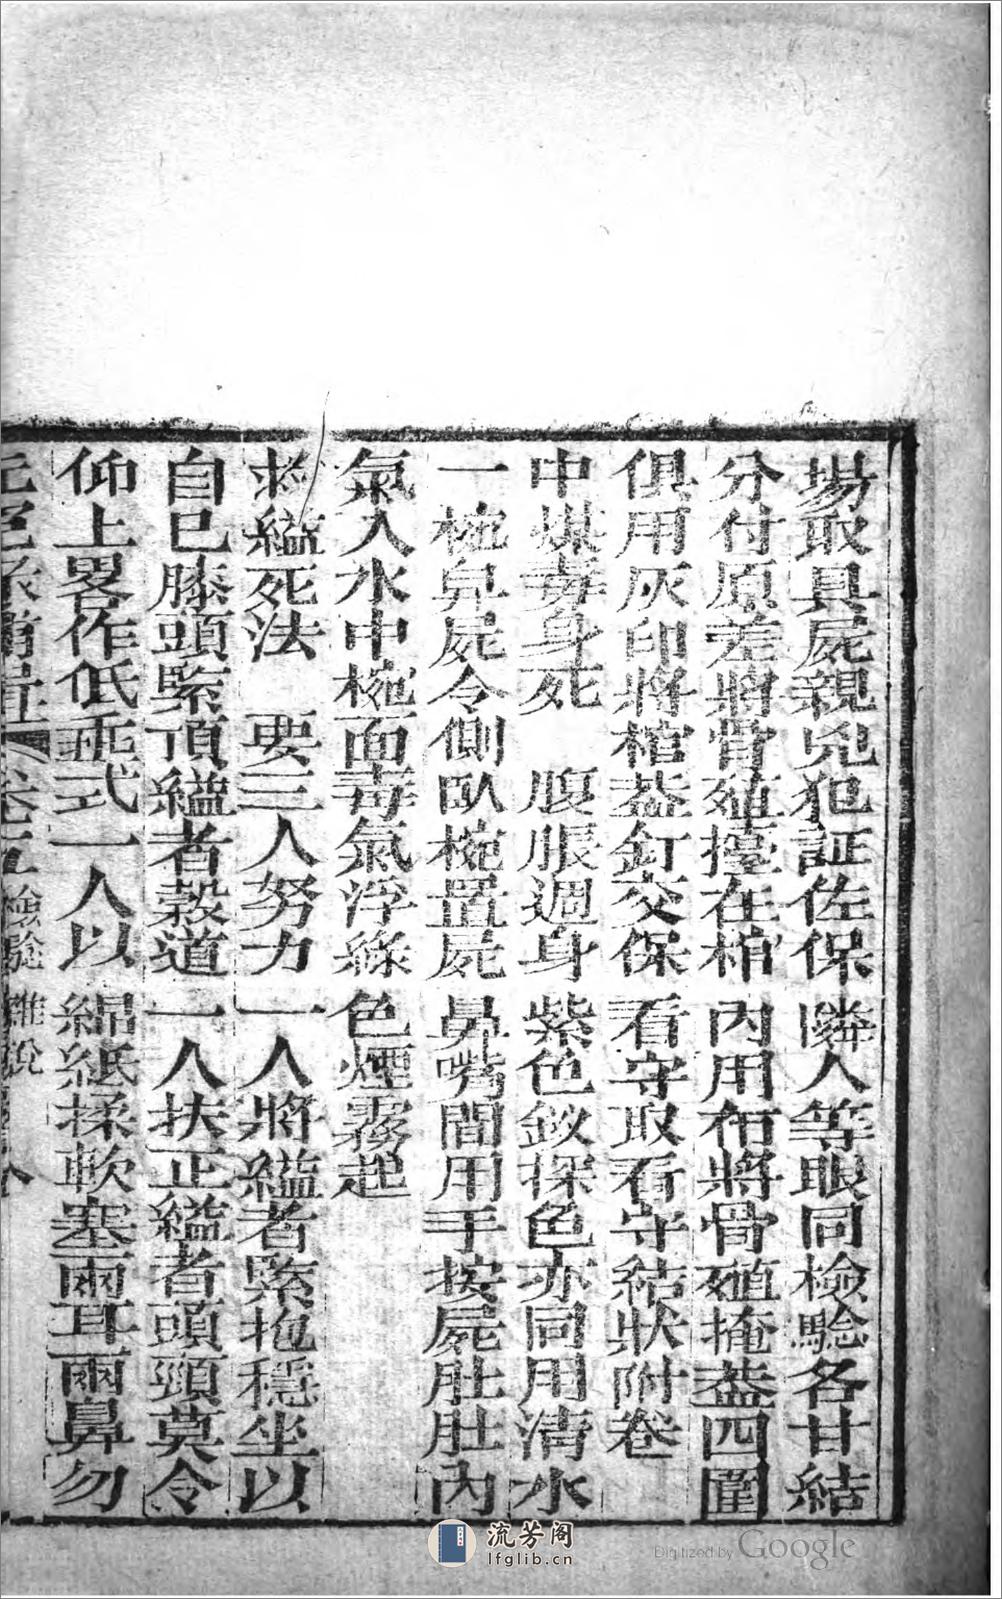 場取具屍親兇犯証佐保隣人等眼同檢驗各甘結
分付原差將骨殖擡在棺內用布將骨殖掩葢四圍
俱用灰印將棺葢釘交保看守取看守結狀附卷
中煤毒身死　腹脹週身紫色銀探色亦同用清水
一椀舁屍令側臥椀置屍鼻嘴間用手按屍肚肚內
氣入水中椀面毒氣浮綠色煙霧起
救縊死法　要三人努力一人將縊者緊抱穩坐以
自已膝頭緊頂縊者穀道一人扶正縊者頭頸莫令
仰上畧作低垂式一人以綿紙揉軟塞兩耳兩鼻勿
卷五檢驗雜說
流芳阁
lfglib.cn
Digitized by Google